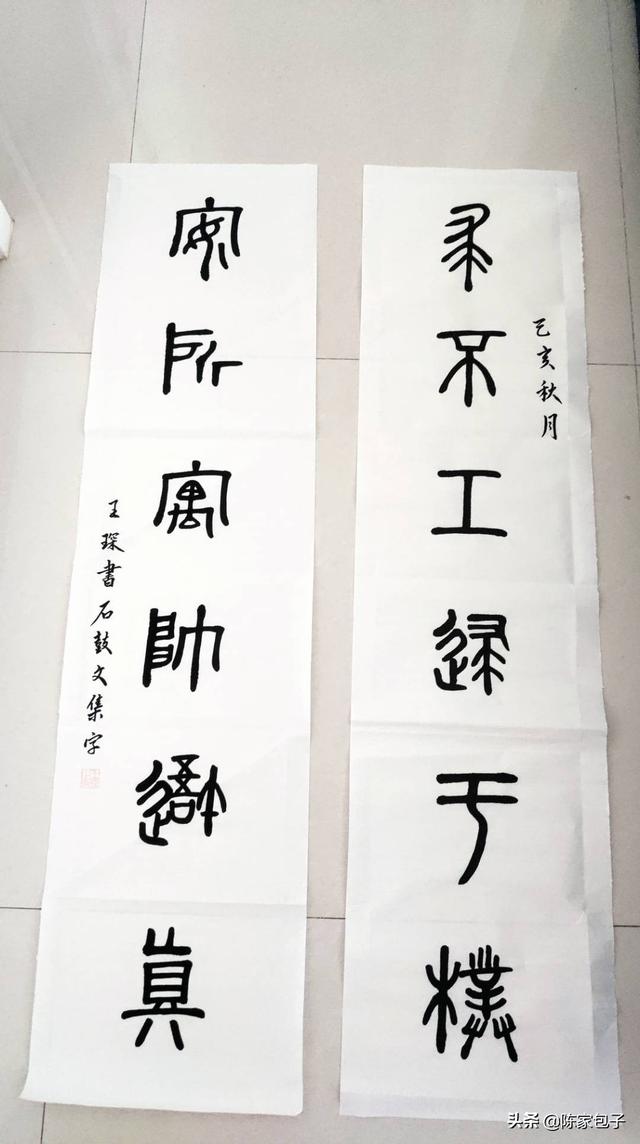 求不工歸于樸
乙亥秋月
安所寓帥吾真
王琛書石鼓文集字
头条 @陈家包子